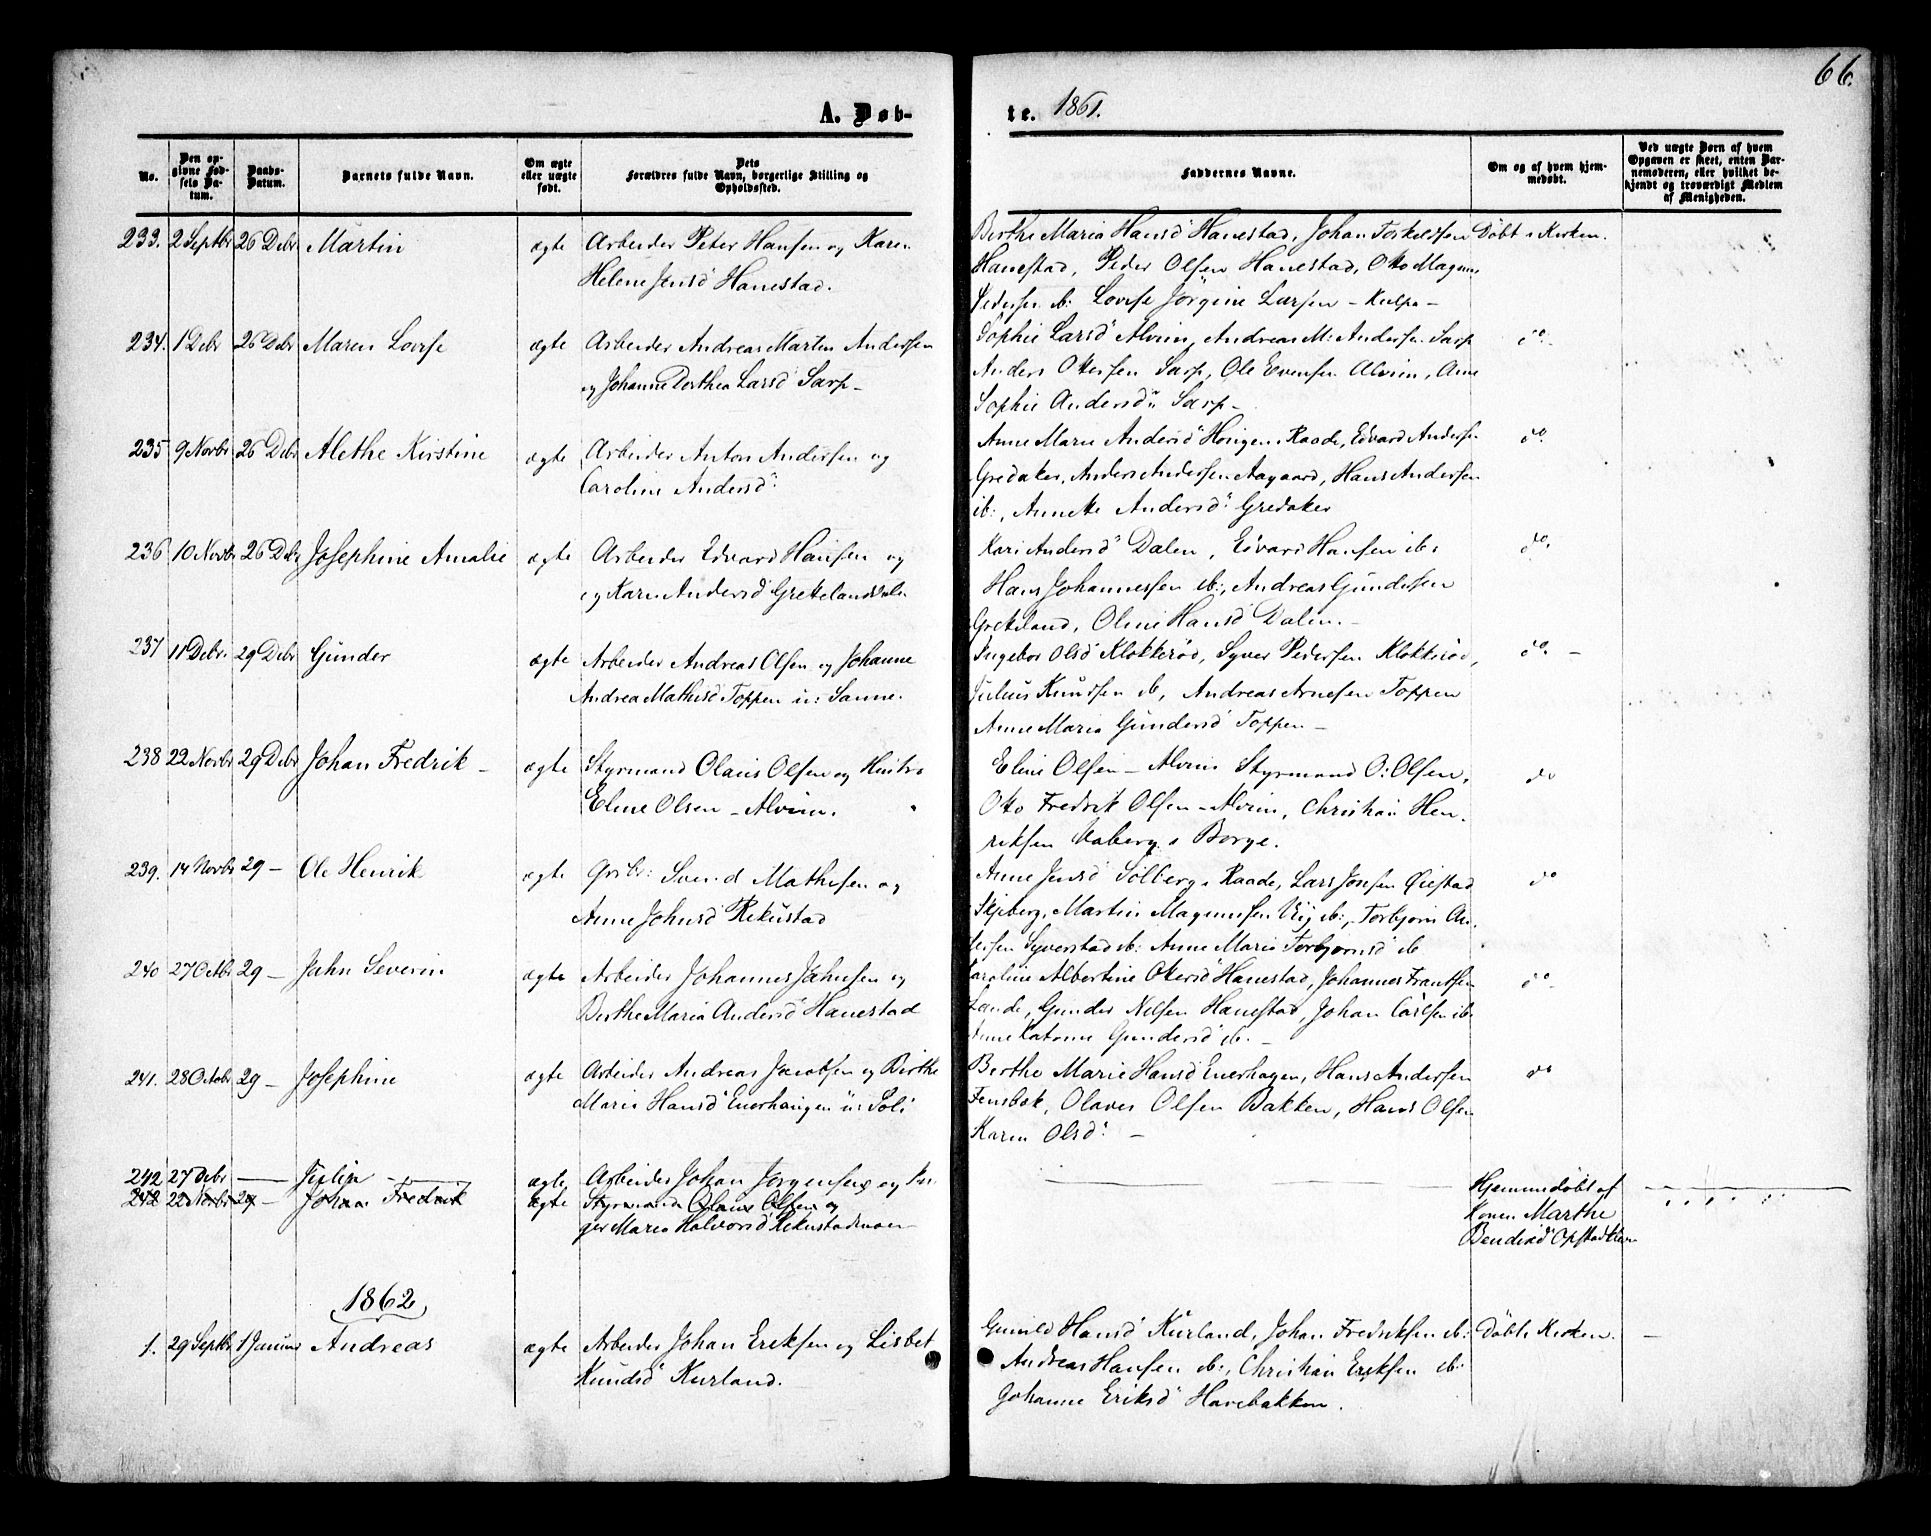 66.
A. Døb-
te. 1861.
No.
Den op-
givne Fød-
sels Da-
tum.
Daabs-
Datum.
Barnets fulde Navn.
Om ægte
eller uægte
født.
Dets
Forældres fulde Navn, borgerlige Stilling og
Opholdssted.
Faddernes Navne.
Om og af hvem hjem-
medøbt.
Ved uægte Børn af hvem
Opgaven er skeet, enten Bar-
nemoderen, eller hvilket be-
kjendt og troværdigt Medlem
af Menigheden.
233. 2 Septbr 26 Debr Martin ægte Arbeider Peter Hansen og Karen
Helene Jensd Hanestad.
Berthe Maria Hansd Hanestad, Johan Torkeldsen
Hanestad, Peder Olsen Hanestad, Otto Magnus
Pedersen ib: Lovise Jörgine Larsen – Kulpe –
Döbt i Kirken.
234. 1 Debr 26 Debr Maren Lovise ægte Arbeider Andreas Marten Andersen
og Johanne Dorthea Larsd Sarp –
Sophie Larsd Alvim, Andreas M: Andersen Sarp
Anders Ottersen Sarp, Ole Evensen Alvim, Anne
Sophie Andersd Sarp –
do –
235 9 Novbr 26 Debr Alethe Kirstine ægte Arbeider Anton Andersen og
Caroline Andersd
Anne Marie Andersd Raade, Edvard Andersen
Gredaker, Anders Andersen Aagaard, Hans Andersen
ib:, Annette Andersd Gredaker
do.
236 10 Novbr 26 Debr Josephine Amalie ægte Arbeider Edvard Hansen og
og Karen Andersd Grekelandsdalen
Kari Andersd Dalen, Edvard Hansen ib:
Hans Johannessen ib:, Andreas Gundersen
Grekeland, Oline Hansd Dalen. –
do.
237 11 Debr 29 Debr Gunder ægte Arbeider Andreas Olsen og Johanne
Andrea Mathisd Toppen u: Sanne.
Ingebor Olsd Klokkeröd, Syver Pedersen Klokkeröd,
Julius Knudsen ib, Andreas Arnesen Toppen
Anne Maria Gundersd Toppen –
do. –
238 22 Novbr 29 Debr Johan Fredrik – ægte Styrmand Olaus Olsen og Hustro
Eline Olsen – Alvim.
Eline Olsen – Alvim Styrmand O: Olsen,
Otto Fredrik Olsen – Alvim, Christian Hen-
riksen i Borge.
do
239. 14 Novbr 29 – Ole Henrik ægte Grbr: Svend Mathisen og
Anne Johnsd Rekustad
Anne Jensd Solberg i Raade, Lars Jonsen Öiestad
Skjeberg, Martin Magnusen ib:, Torbjörn An-
dersen Syverstad ib: Anne Maria Torbjörnsd ib
do
240 27 Octbr 29 – Jahn Severin ægte Arbeider Johannes Jahnsen og
Berthe Maria Andersd Hanestad
Caroline Albertine Ottersd Hanestad, Johannes Frantsen
Lande, Gunder Nelsen Hanestad, Johan Carlsen ib.
Gundersd ib. –
do –
241. 28 Octobr 29 – Josephine ægte Arbeider Andreas Jacobsen og Birthe
Maria Hansd Enerhaugen u: Soli
Berthe Marie Hansd Enerhagen, Hans Andersen
Fensbæk, Olaves Olsen Bakken, Hans Olsen
Karen Olsd –
do
242 27 Debr — Julie — ægte Arbeider Johan Jörgensen og In-
242 22 Novbr 29 – Johan Fredrik ægte Styrmand Olaus Olsen og
ger Maria Halvorsd Rekustadmoen
Hjemmedöbt af
Konen Marthe
1862
1. 29 Septbr 1 Januar Andreas ægte Arbeider Johan Eriksen og Lisbet
Knudsd Kurland.
Gunild Hansd Kurland, Johan Fredriksen ib:
Andreas Hansen ib:, Christian Eriksen ib:
Johanne Eriksd Havebakken.
Döbt i Kirken. –